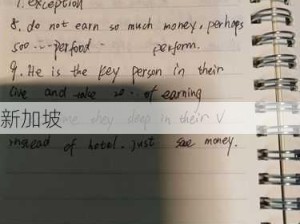 7. exception
8. do not earn so much money, perhaps
perform.
9. He is the key person in their
live and of earning
they sleep in their V
新加坡
instead of hotel. just money.